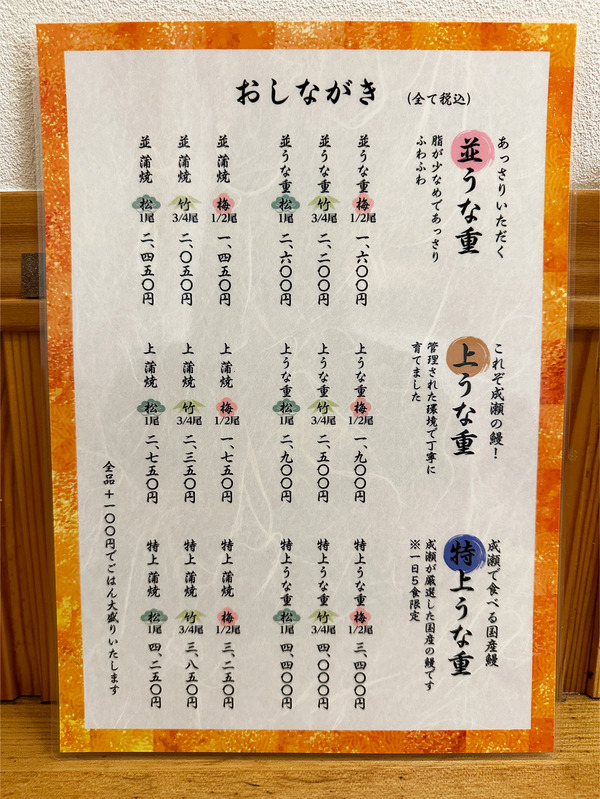 おしながき
(全て税込)
あっさりいただく
並うな重
脂が少なめであっさり
ふわふわ
並うな重 梅 1/2尾 一、六〇〇円
並うな重 竹 3/4尾 二、二〇〇円
並うな重 松 1尾 二、六〇〇円
並 蒲焼 梅 1/2尾 一、四五〇円
並 蒲焼 竹 3/4尾 二、〇五〇円
並 蒲焼 松 1尾 二、四五〇円
これぞ成瀬の鰻!
上うな重
管理された環境で丁寧に
育てました
上うな重 梅 1/2尾 一、九〇〇円
上うな重 竹 3/4尾 二、五〇〇円
上うな重 松 1尾 二、九〇〇円
上 蒲焼 梅 1/2尾 一、七五〇円
上 蒲焼 竹 3/4尾 二、三五〇円
上 蒲焼 松 1尾 二、七五〇円
成瀬で食べる国産鰻
特上うな重
成瀬が厳選した国産の鰻です
※一日5食限定
特上うな重 梅 1/2尾 三、四〇〇円
特上うな重 竹 3/4尾 四、〇〇〇円
特上うな重 松 1尾 四、四〇〇円
特上 蒲焼 梅 1/2尾 三、二五〇円
特上 蒲焼 竹 3/4尾 三、八五〇円
特上 蒲焼 松 1尾 四、二五〇円
全品+一〇〇円でごはん大盛りいたします